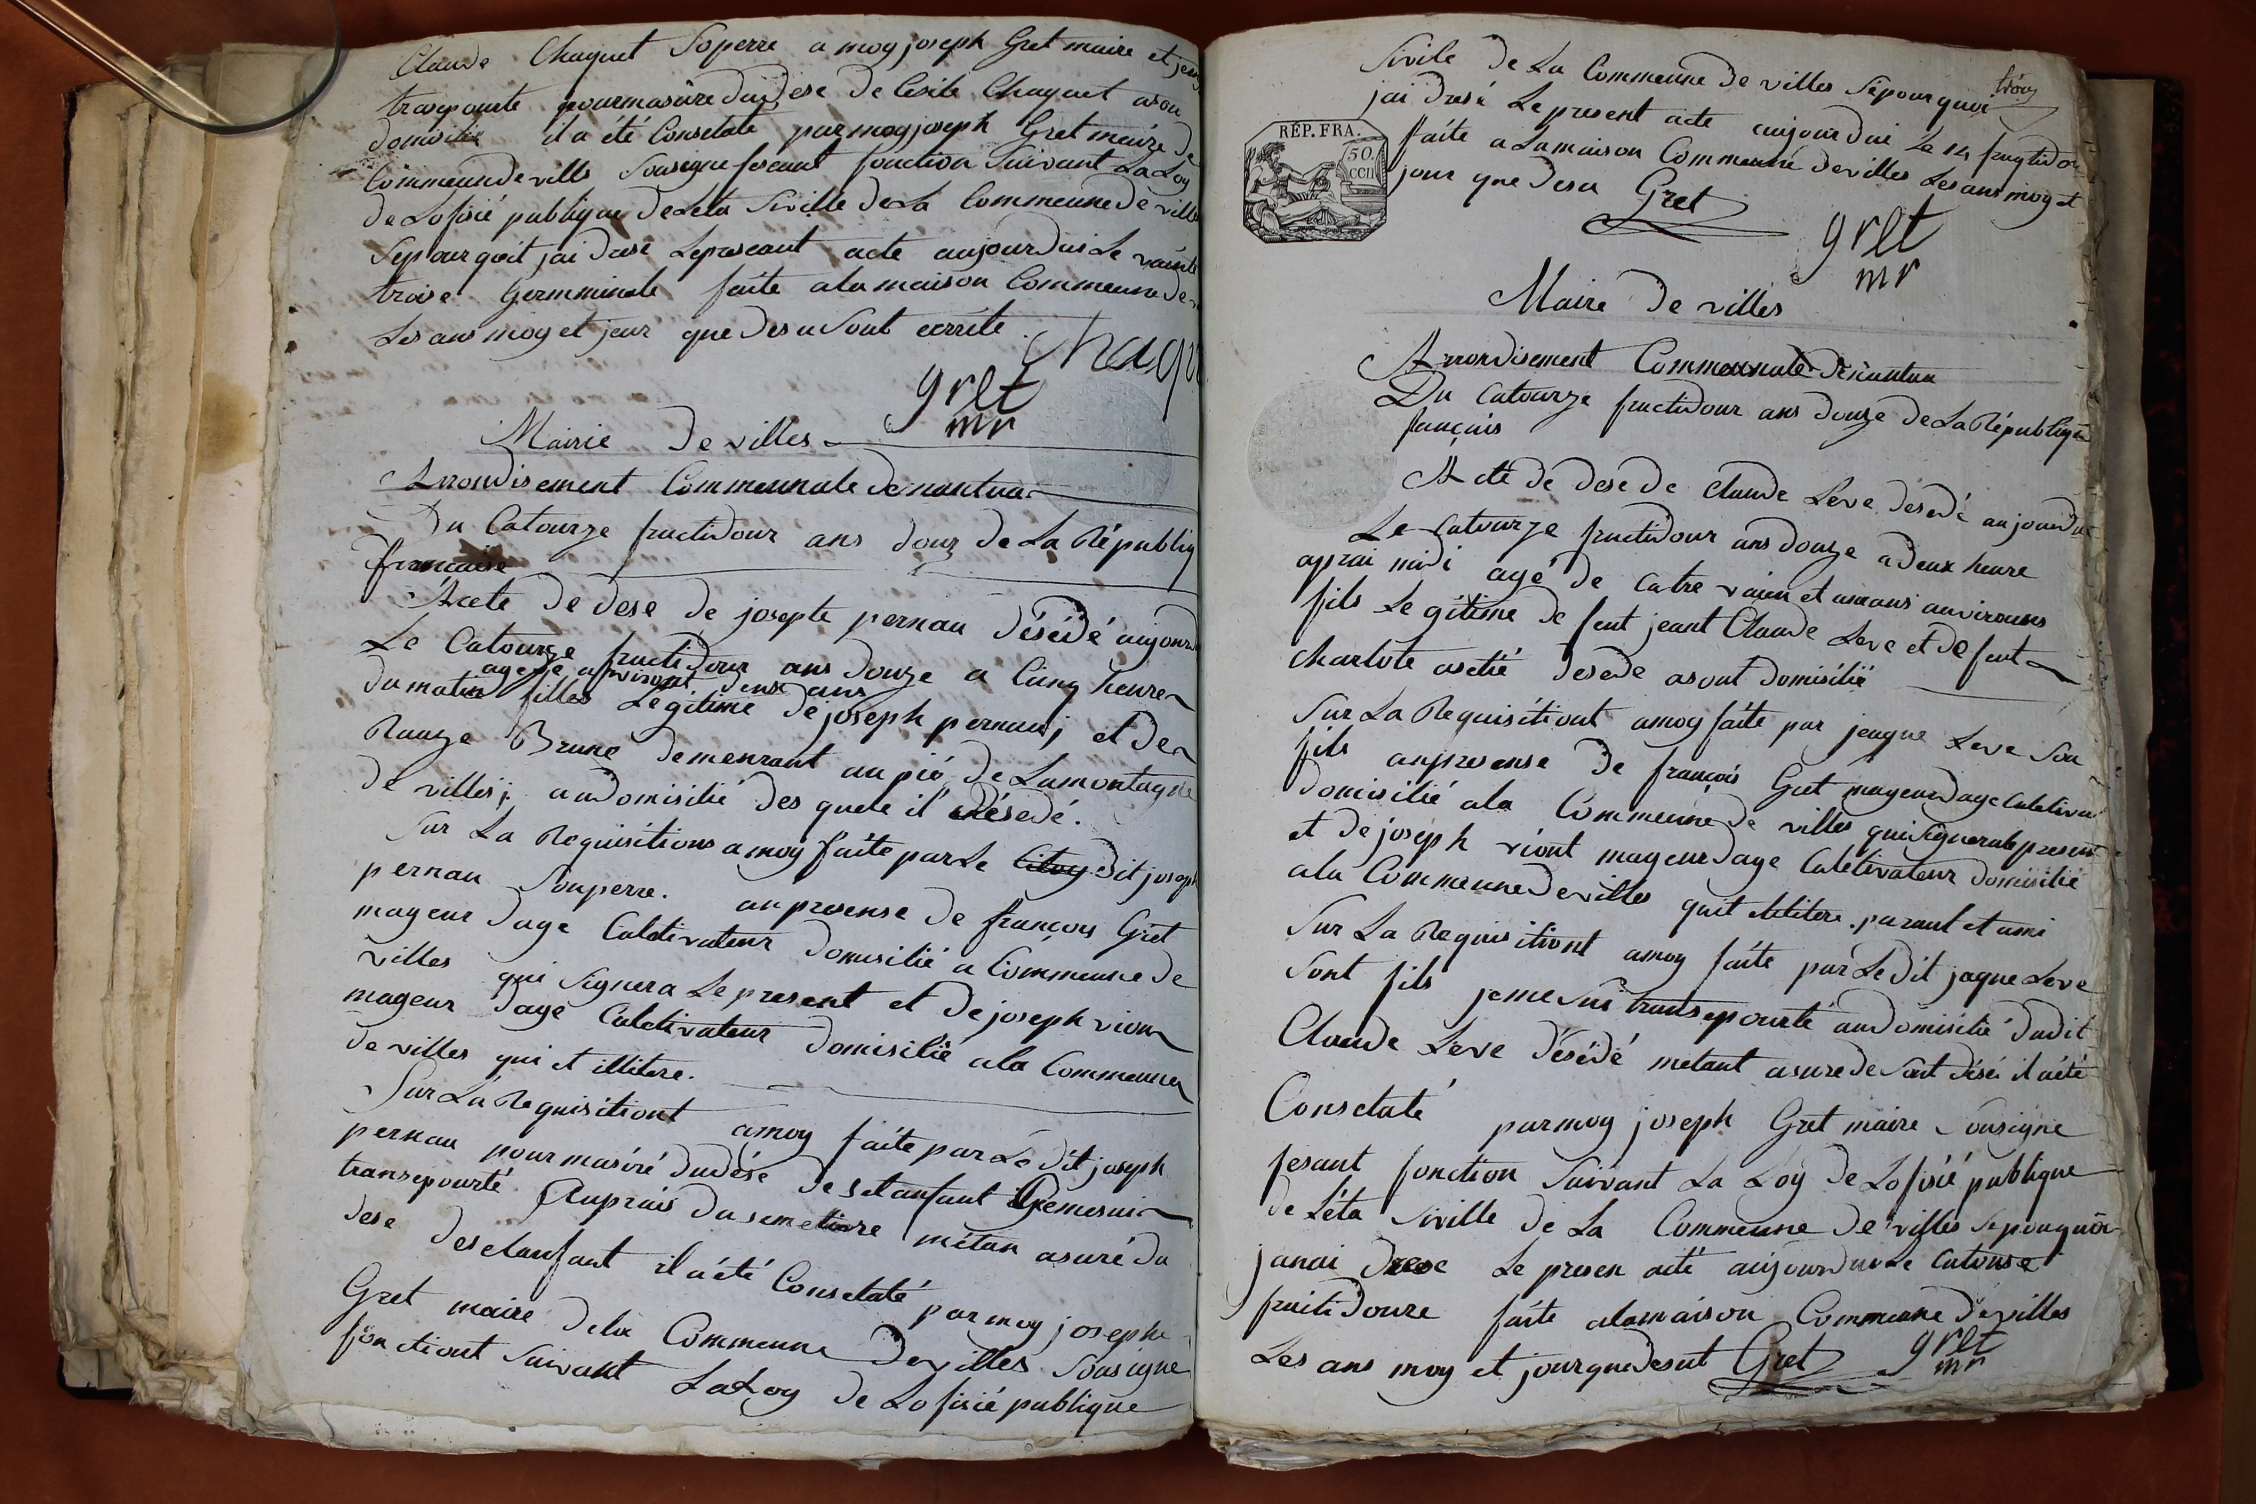 Claude Chaquet Soperre a moy joseph Gret maire et
trasepourte pourmasûre dudese de Cesile Chaquet asou
domisilié il a été Consetaté parmoy joseph Gret maire de
Commeunde ville Sousigne fesant fonction Suivant La Loy
de Lofisié publique de Leta Siville de La Commeune de ville
Sepourquoit jai dresé Lepreseant acte aujourdui Le vainte
troise Germminale faite ala maison Commeune de
Les ans moy et jour que desu Sont écrite
Chaqu
gret
mr
Mairie de villes
Arrondisement Commeunale de nantua
Du Catourze fructidour ans douz de La Républiq
francaise
Acete de dese de josepte pernau désédé aujourd
Le Catourze fructidour ans douze a Cinq heure
agejé anviront deux ans
du matin filles Legitime de joseph pernau et de
Rauze Brune demeurant au pié de Lamontagne
de villes audomisilié des quele il désedé.
Sur La Requisitions a moy faite par Le Citoy dit joseph
pernau Souperre. anpresense de françois Gret
mageur dage Caletivateur domisilié a Commeune de
villes qui Signera Le present et de joseph vion
mageur dage Caletivateur domisilié ala Commeune
de villes qui et illitere.
Sur La Requisitiont amoy faite par Le dit joseph
pernau pour masúré dudése de Setanfant jemesui
transepourté Auprais du semetiere métan asuré du
dese desetanfant il a été Consetaté par moy joseph
Gret maire dela Commeune de villes Sousigné
fonctiont Suivant LaLoy de Lofisié publique
Sivile de La Commeune de villes Sepourquoi
trois
jai dresé Le present acte aujourdui Le 14 frugtidou
faite a Lamaison Commeune de villes Les ans moy et
jour que desu Gret
RÉP. FRA.
50.
CCII
gret
mr
Maire de villes
Arrondisement Commeunale de nantua
Du Catourze fructidour ans douze de La Républiqu
français
Acte de dese de Claude Leve désedé aujourdui
Le Catourze fructidour ans douze a deux heure
aprai midi agé de Catre vaien et aneans anvirouns
fils Le gitime de feut jeant Claude Leve et de feut
Charlote desede asont domisilié
Sur La Requisitiont amoy faite par jeaque Leve Sou
fils anpresense de français Gret mageur dage Caletiva
domisilié ala Commeune de villes qui Signera Le present
et de joseph viont mageur dage Caletivateur domisilié
ala Commeune de villes quit Illitere. parant et ami
Sur La Requisitiont amoy faite par Le dit jaque Leve
Sont fils jeme Sui transepourté audomisilié dudit
Claude Leve désédé metant asure de Sont désé il a été
Consetaté parmoy joseph Gret maire Sousigne
fesant fonction Suivant La Loy de Lofisié publique
de Léta Siville de La Commeune de villes Sepourquoi
janai drese Le presen acte aujourdui Le Catouse
fruitidoure faite alamaison Commeune de villes
Les ans moy et jour que desut Gret
gret
mr